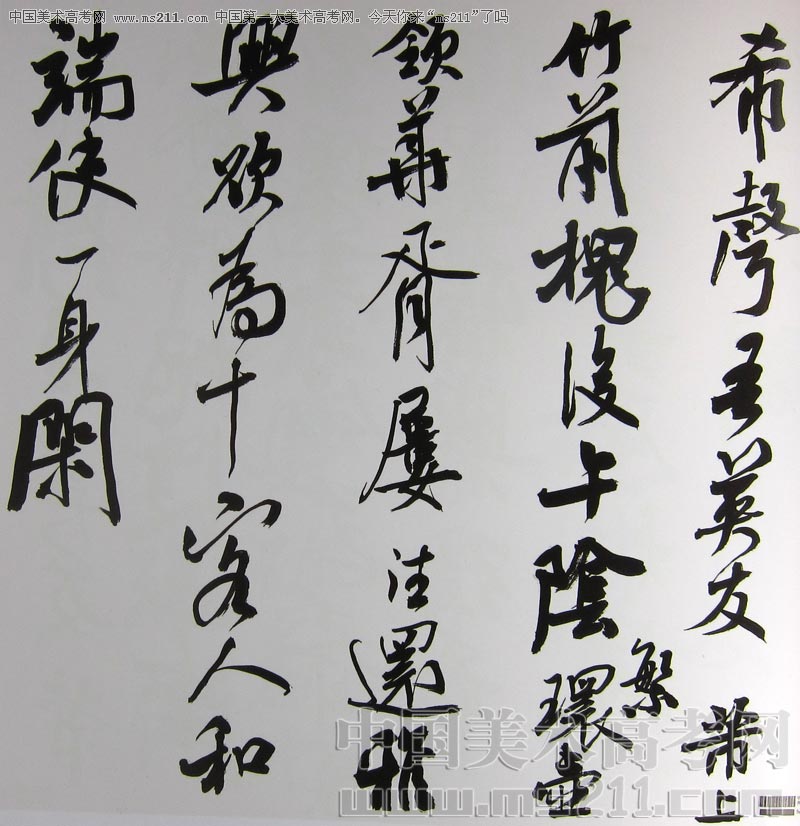 中国美术高考网 www.ms211.com 中国第一大美术高考网。今天你来“ms211”了吗
希聲吾英友 芾上
竹前槐後午陰環繁壺
領華胥屢往還雅
興欲為十客人和
端使一身閑
中国美术高考网
www.ms211.com